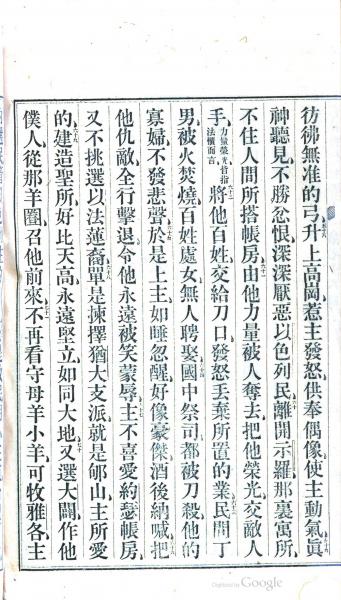 彷彿無准的弓升上高崗惹主發怒供奉偶像使主動氣眞
神聽見不勝忿恨深深厭惡以色列民離開示羅那裏寓所
不住人間所搭帳房由他力量被人奪去把他榮光交敵人
手力量榮光皆指法櫃而言將他百姓交給刀口發怒丢棄所置的業民間丁
男被火焚燒百姓處女無人聘娶國中祭司都被刀殺他的
寡婦不發悲聲於是上主如睡忽醒好像豪傑酒後吶喊把
他仇敵全行擊退令他永遠被笑蒙辱主不喜愛約瑟帳房
又不挑選以法蓮裔單是揀擇猶大支派就是郇山主所愛
的建造聖所好比天高永遠堅立如同大地又選大闢作他
僕人從那羊圈召他前來不再看守母羊小羊可牧雅各主
Digitized by Google